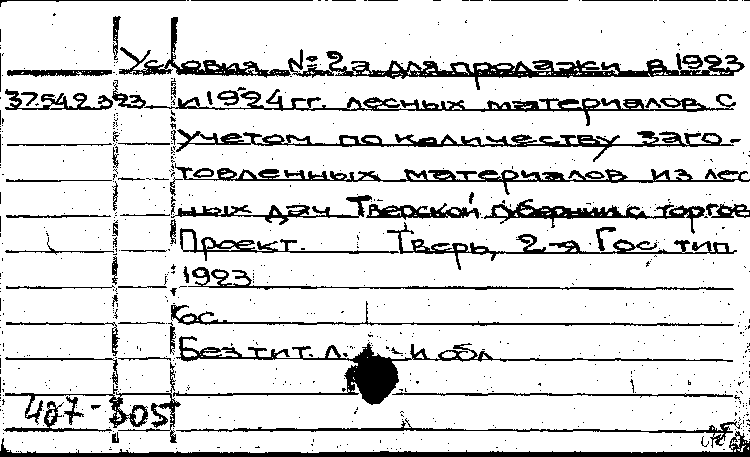 Условия № 2а для продажи в 1923
37.542.323 и 1924 гг. лесных материалов с
учетом по количеству заго-
товленных материалов из лес
ных дач Тверской губернии с торгов
Проект. Тверь, 2-я Гос. тип.
1923
6с.
Без тит. л. и обл
427-305